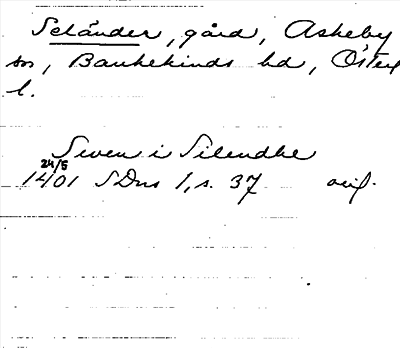 Seländer, gård, Askeby
sn, Bankekinds hd, Östergl.
l.
Swen i Silendhe
24/5
1401 SDns 1, s. 37 avif.